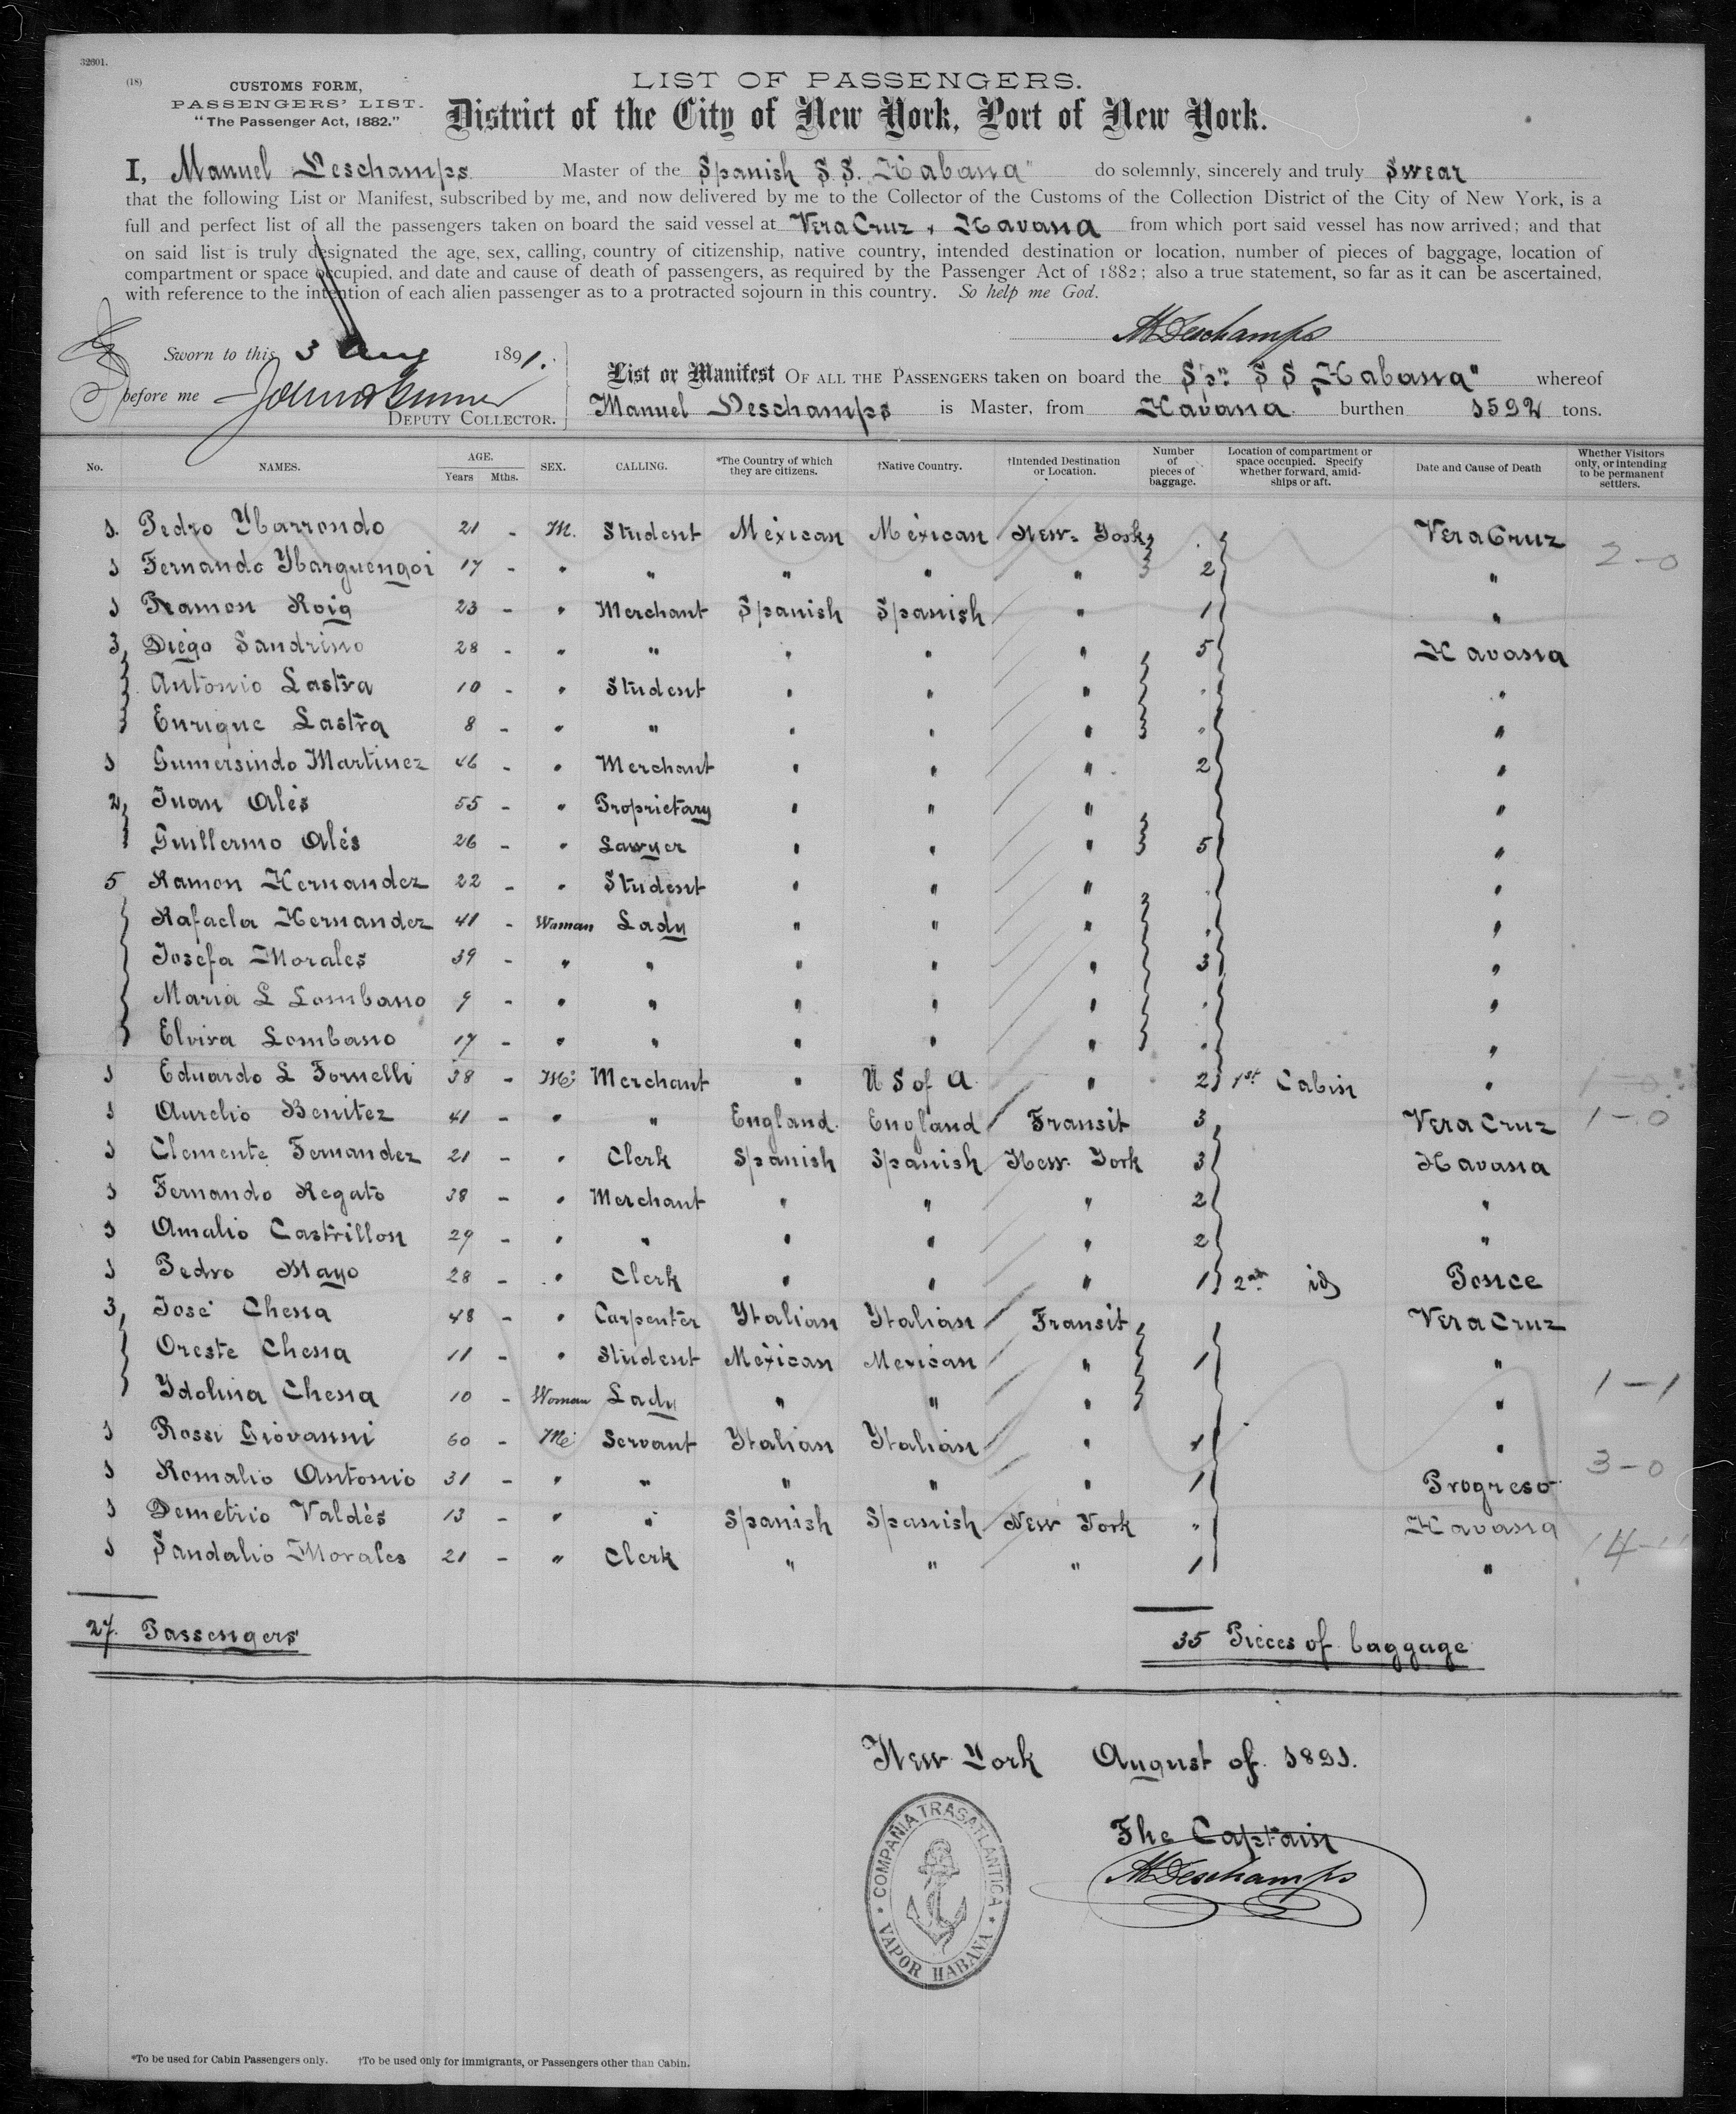 32601.
(18)
CUSTOMS FORM,
PASSENGERS' LIST.
"The Passenger Act, 1882."
LIST OF PASSENGERS.
District of the City of New York, Port of New York.
I, Manuel Deschamps Master of the Spanish S.S. Habana" do solemnly, sincerely and truly Swear
that the following List or Manifest, subscribed by me, and now delivered by me to the Collector of the Customs of the Collection District of the City of New York, is a
full and perfect list of all the passengers taken on board the said vessel at Vera Cruz & Havana from which port said vessel has now arrived; and that
on said list is truly designated the age, sex, calling, country of citizenship, native country, intended destination or location, number of pieces of baggage, location of
compartment or space occupied, and date and cause of death of passengers, as required by the Passenger Act of 1882; also a true statement, so far as it can be ascertained,
with reference to the intention of each alien passenger as to a protracted sojourn in this country. So help me God.
MDeschamps
Sworn to this 3 Aug 1891.
before me
DEPUTY COLLECTOR.
List or Manifest OF ALL THE PASSENGERS taken on board the Spn. S S Habana" whereof
Manuel Deschamps is Master, from Havana burthen 1592 tons.
No. NAMES. AGE. Years Mths. SEX. CALLING. *The Country of which they are citizens. †Native Country. †Intended Destination or Location. Number of pieces of baggage. Location of compartment or space occupied. Specify whether forward, amidships or aft. Date and Cause of Death Whether Visitors only, or intending to be permanent settlers.
1. Pedro Ybarrondo 21 - M. Student Mexican Mexican New York " Vera Cruz
1 Fernando Ybarguengoi 17 - " " " " " 2 " 2-0
1 Ramon Roig 23 - " Merchant Spanish Spanish " 1 "
3, Diego Sandrino 28 - " " " " " 5 Havana
Antonio Lastra 10 - " Student " " " " "
Enrique Lastra 8 - " " " " " " "
1 Gumersindo Martinez 46 - " Merchant " " " 2 "
2, Juan Alés 55 - " Proprietary " " " "
Guillermo Alés 26 - " Lawyer " " " 5 "
5 Ramon Hernandez 22 - " Student " " " "
Rafaela Hernandez 41 - Woman Lady " " " " "
Josefa Morales 39 - " " " " " 3 "
Maria L Lombano 9 - " " " " " " "
Elvira Lombano 17 - " " " " " " "
1 Eduardo L Fornelli 38 - M. Merchant " U S of A " 2 1st Cabin " 1-0
1 Aurelio Benitez 41 - " " England. England Transit 3 Vera Cruz 1-0
1 Clemente Fernandez 21 - " Clerk Spanish Spanish New York 3 Havana
1 Fernando Regato 38 - " Merchant " " " 2 "
1 Amalio Castrillon 29 - " " " " " 2 "
1 Pedro Mayo 28 - " Clerk " " " 1 2nd id Ponce
3, José Chessa 48 - " Carpenter Ytalian Ytalian Transit Vera Cruz
Oreste Chessa 11 - " Student Mexican Mexican " 1 "
Ydolina Chessa 10 - Woman Lady " " " " 1-1
1 Rossi Giovanni 60 - M. Servant Ytalian Ytalian " 1 "
1 Romalio Antonio 31 - " " " " " 1 Progreso 3-0
1 Demetrio Valdés 13 - " " Spanish Spanish New York " Havana
1 Sandalio Morales 21 - " Clerk " " " 1 "
27. Passengers
35 Pieces of baggage
New York August of 1891.
The Captain
MDeschamps
COMPAÑIA TRASATLANTICA
VAPOR HABANA
*To be used for Cabin Passengers only. †To be used only for immigrants, or Passengers other than Cabin.